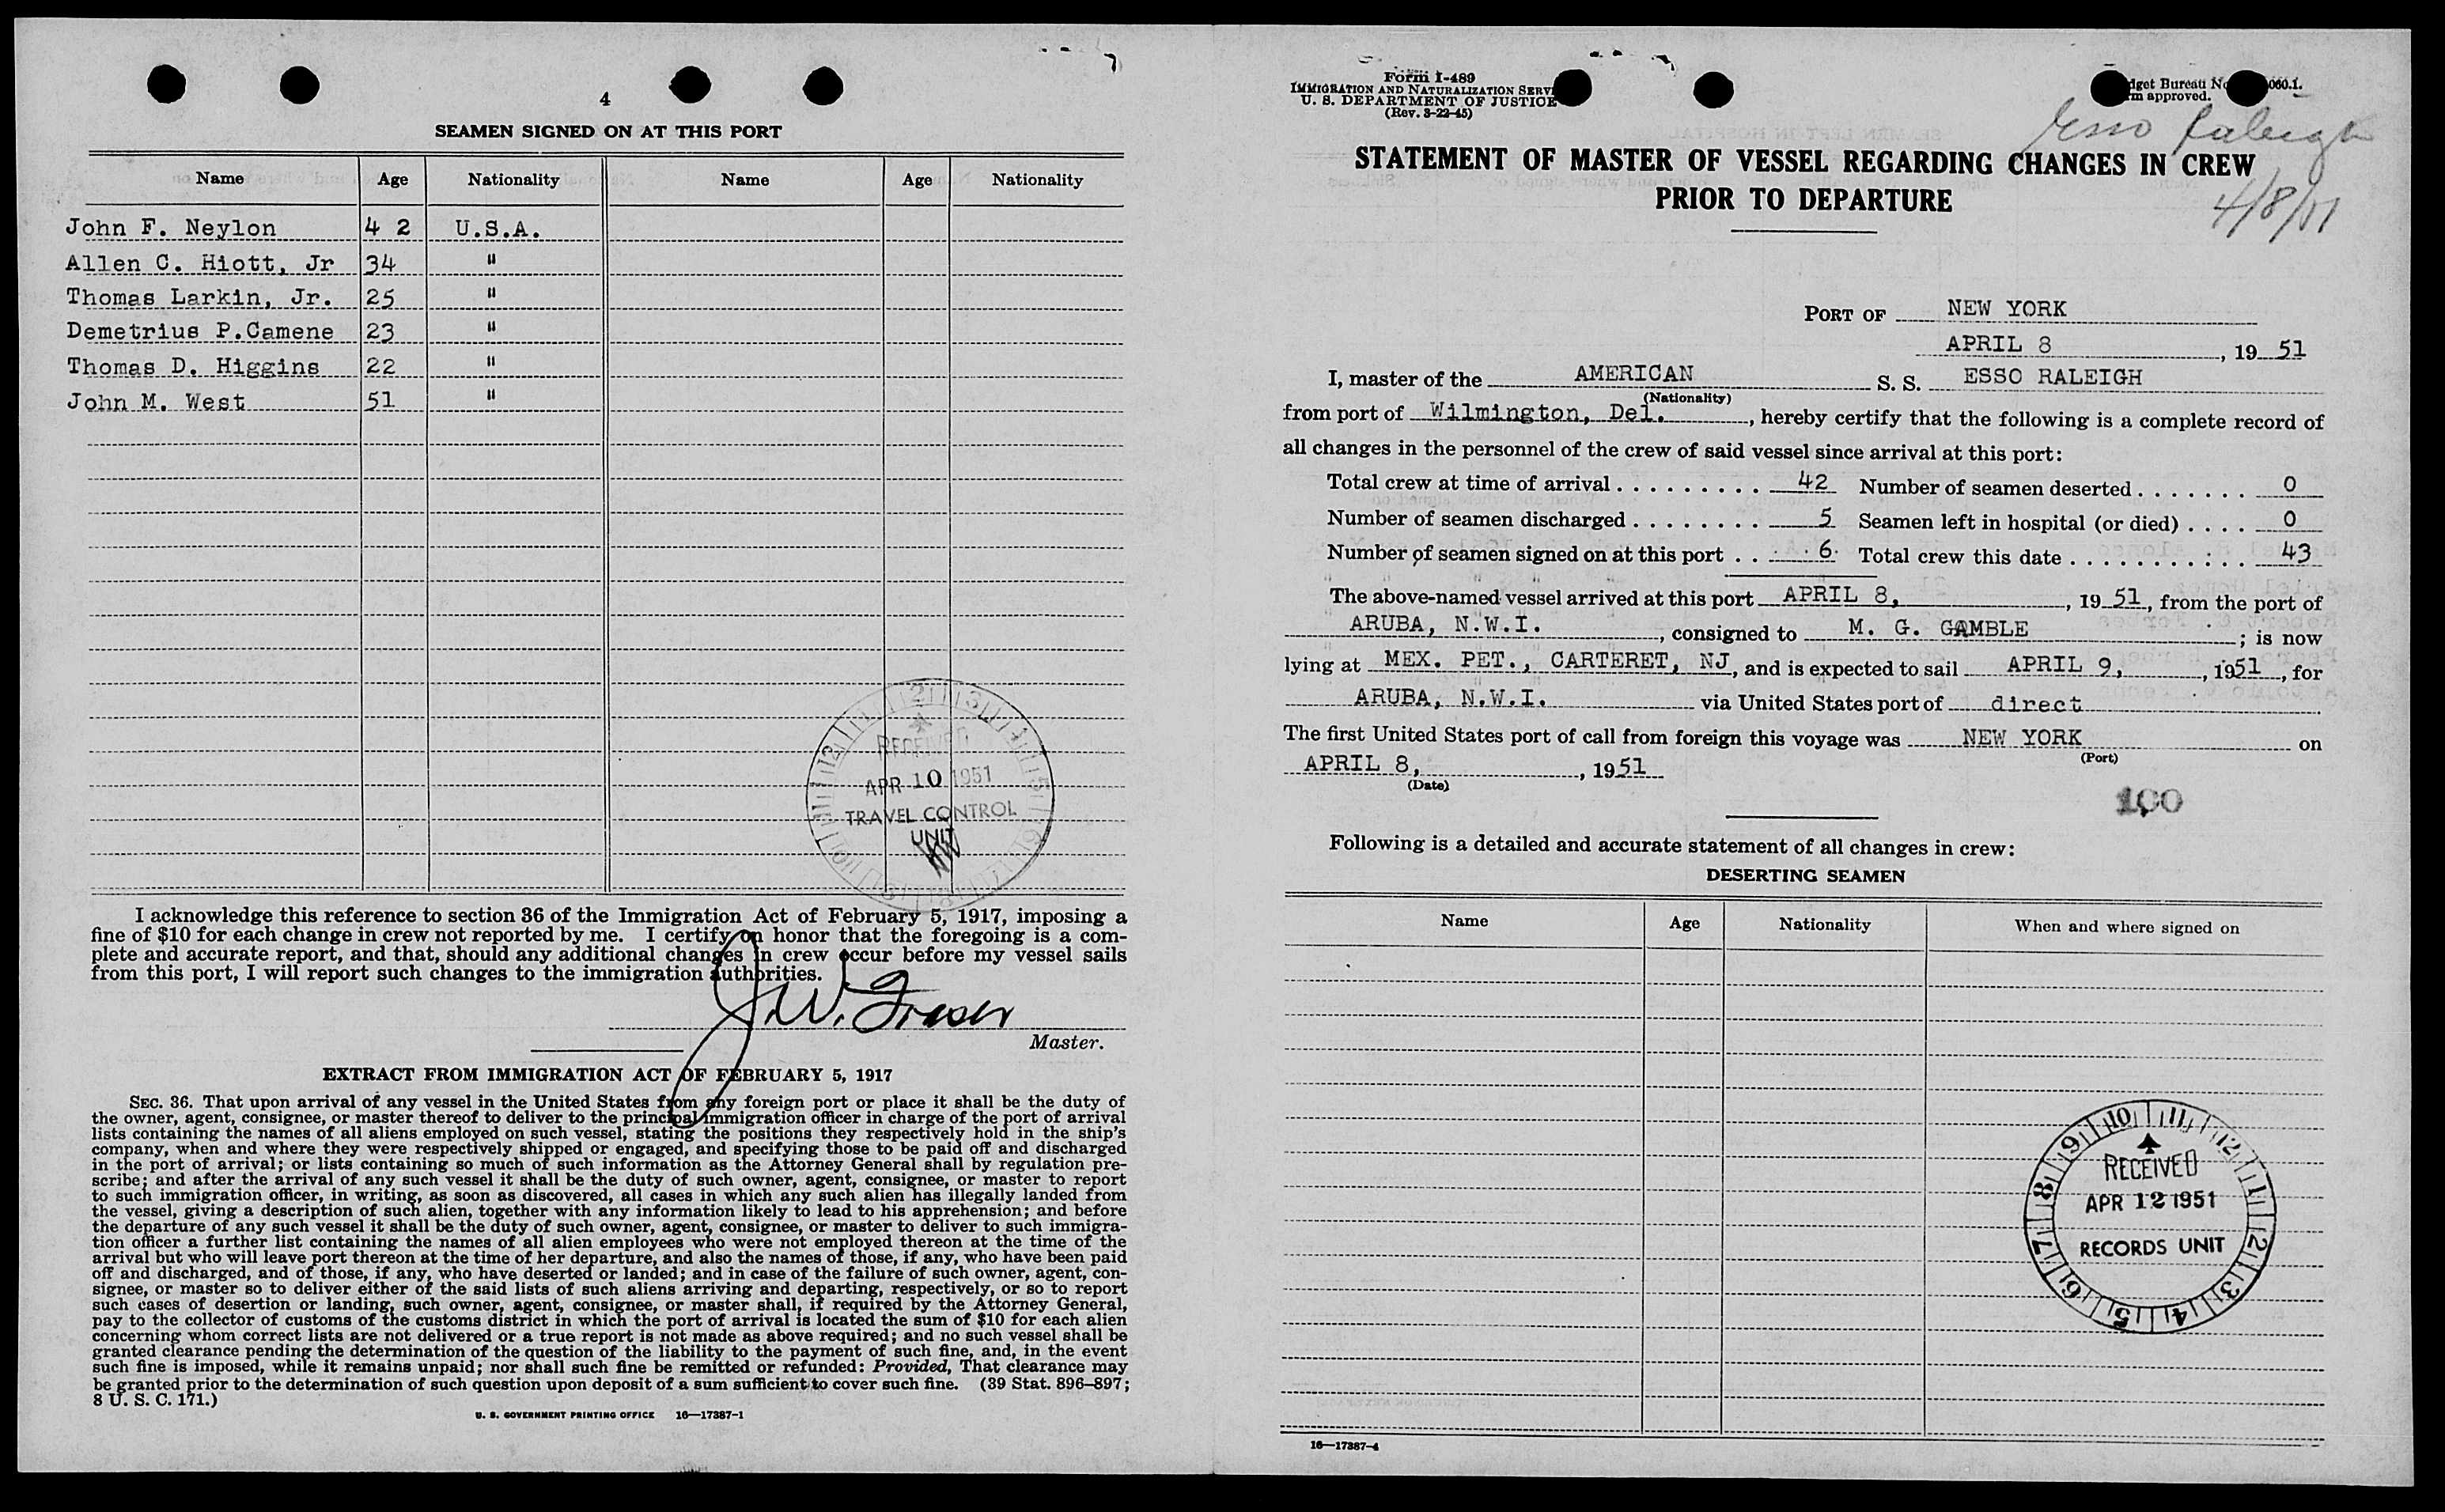 4
SEAMEN SIGNED ON AT THIS PORT
Name Age Nationality Name Age Nationality
John F. Neylon 4 2 U.S.A.
Allen C. Hiott, Jr 34 "
Thomas Larkin, Jr. 25 "
Demetrius P.Camene 23 "
Thomas D. Higgins 22 "
John M. West 51 "
RECEIVED
APR 10 1951
TRAVEL CONTROL
UNIT
I acknowledge this reference to section 36 of the Immigration Act of February 5, 1917, imposing a
fine of $10 for each change in crew not reported by me. I certify on honor that the foregoing is a com-
plete and accurate report, and that, should any additional changes in crew occur before my vessel sails
from this port, I will report such changes to the immigration authorities.
J.W. Fraser
Master.
EXTRACT FROM IMMIGRATION ACT OF FEBRUARY 5, 1917
SEC. 36. That upon arrival of any vessel in the United States from any foreign port or place it shall be the duty of
the owner, agent, consignee, or master thereof to deliver to the principal immigration officer in charge of the port of arrival
lists containing the names of all aliens employed on such vessel, stating the positions they respectively hold in the ship's
company, when and where they were respectively shipped or engaged, and specifying those to be paid off and discharged
in the port of arrival; or lists containing so much of such information as the Attorney General shall by regulation pre-
scribe; and after the arrival of any such vessel it shall be the duty of such owner, agent, consignee, or master to report
to such immigration officer, in writing, as soon as discovered, all cases in which any such alien has illegally landed from
the vessel, giving a description of such alien, together with any information likely to lead to his apprehension; and before
the departure of any such vessel it shall be the duty of such owner, agent, consignee, or master to deliver to such immigra-
tion officer a further list containing the names of all alien employees who were not employed thereon at the time of the
arrival but who will leave port thereon at the time of her departure, and also the names of those, if any, who have been paid
off and discharged, and of those, if any, who have deserted or landed; and in case of the failure of such owner, agent, con-
signee, or master so to deliver either of the said lists of such aliens arriving and departing, respectively, or so to report
such cases of desertion or landing, such owner, agent, consignee, or master shall, if required by the Attorney General,
pay to the collector of customs of the customs district in which the port of arrival is located the sum of $10 for each alien
concerning whom correct lists are not delivered or a true report is not made as above required; and no such vessel shall be
granted clearance pending the determination of the question of the liability to the payment of such fine, and, in the event
such fine is imposed, while it remains unpaid; nor shall such fine be remitted or refunded: Provided, That clearance may
be granted prior to the determination of such question upon deposit of a sum sufficient to cover such fine. (39 Stat. 896–897;
8 U. S. C. 171.)
U. S. GOVERNMENT PRINTING OFFICE 16—17387-1
Form I-489
IMMIGRATION AND NATURALIZATION SERVI
U. S. DEPARTMENT OF JUSTICE
(Rev. 3-22-45)
dget Bureau No 060.1.
m approved.
Esso Raleigh
STATEMENT OF MASTER OF VESSEL REGARDING CHANGES IN CREW
PRIOR TO DEPARTURE
4/8/51
PORT OF NEW YORK
APRIL 8, 19 51
I, master of the AMERICAN S. S. ESSO RALEIGH
(Nationality)
from port of Wilmington, Del., hereby certify that the following is a complete record of
all changes in the personnel of the crew of said vessel since arrival at this port:
Total crew at time of arrival . . . . . . . . . . 42 Number of seamen deserted . . . . . . . 0
Number of seamen discharged . . . . . . . . 5 Seamen left in hospital (or died) . . . . 0
Number of seamen signed on at this port . . . . 6 Total crew this date . . . . . . . . . . . 43
The above-named vessel arrived at this port APRIL 8, , 19 51, from the port of
ARUBA, N.W.I. , consigned to M. G. GAMBLE ; is now
lying at MEX. PET., CARTERET, NJ, and is expected to sail APRIL 9, , 1951, for
ARUBA, N.W.I. via United States port of direct
The first United States port of call from foreign this voyage was NEW YORK on
(Port)
APRIL 8, , 1951
(Date)
100
Following is a detailed and accurate statement of all changes in crew:
DESERTING SEAMEN
Name Age Nationality When and where signed on
RECEIVED
APR 12 1951
RECORDS UNIT
16—17387-4